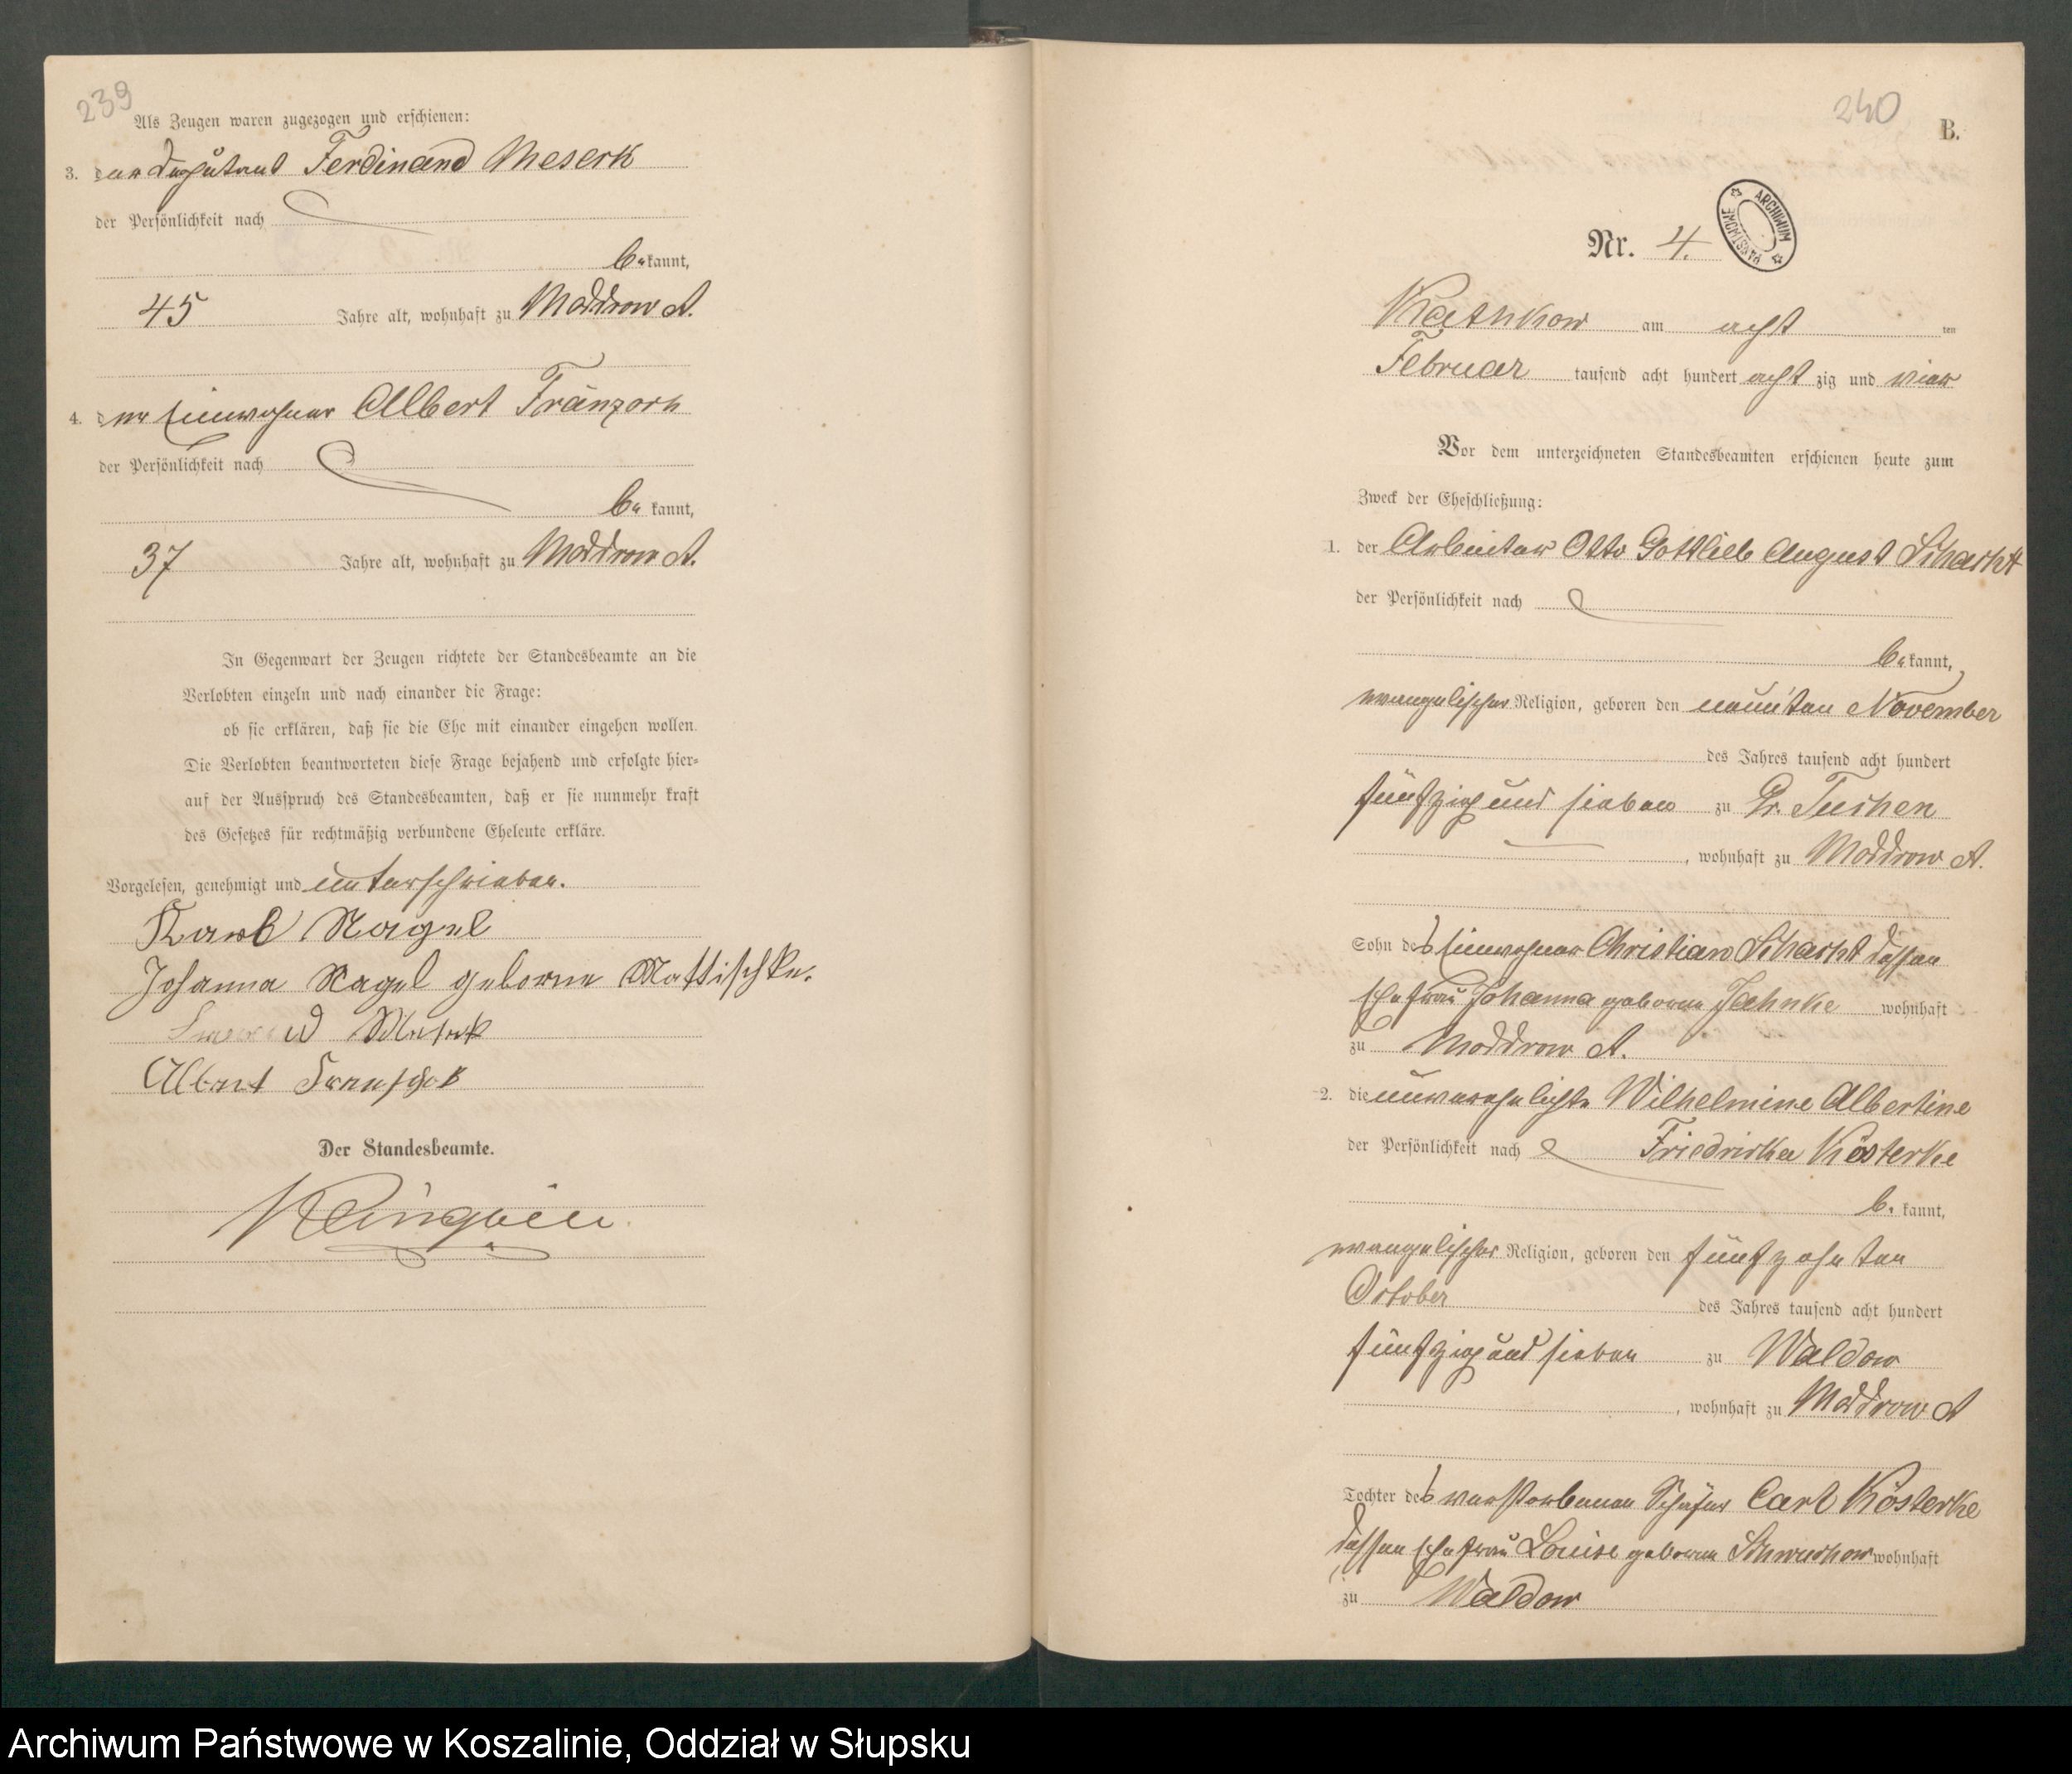 239
Als Zeugen waren zugezogen und erschienen:
3. der Deputant Ferdinand Meserk
der Persönlichkeit nach
bekannt,
45 Jahre alt, wohnhaft zu Moddrow A.
4. der Einwohner Albert Fränzork
der Persönlichkeit nach
bekannt,
37 Jahre alt, wohnhaft zu Moddrow A.
In Gegenwart der Zeugen richtete der Standesbeamte an die
Verlobten einzeln und nach einander die Frage:
ob sie erklären, daß sie die Ehe mit einander eingehen wollen.
Die Verlobten beantworteten diese Frage bejahend und erfolgte hier-
auf der Ausspruch des Standesbeamten, daß er sie nunmehr kraft
des Gesetzes für rechtmäßig verbundene Eheleute erkläre.
Vorgelesen, genehmigt und unterschrieben.
Karl Nagel
Johanna Nagel geborne Mattischke.
Albert
Der Standesbeamte.
240
B.
ARCHIWUM PAŃSTWOWE
Nr. 4.
Kathkow am acht ten
Februar tausend acht hundert acht zig und vier
Vor dem unterzeichneten Standesbeamten erschienen heute zum
Zweck der Eheschließung:
1. der Arbeiter Otto Gottlieb August Schacht
der Persönlichkeit nach
bekannt,
evangelischer Religion, geboren den neunten November
des Jahres tausend acht hundert
fünfzig und sieben zu Gr. Tuchen
, wohnhaft zu Moddrow A.
Sohn des Einwohner Christian Schacht dessen
Ehefrau Johanna geborene Jahnke wohnhaft
zu Moddrow A.
2. die unverehelichte Wilhelmine Albertine
der Persönlichkeit nach Friedricka Kösterke
bekannt,
evangelischer Religion, geboren den fünfzehnten
October des Jahres tausend acht hundert
fünfzig und sieben zu Waldow
, wohnhaft zu Moddrow A
Tochter des verstorbenen Schäfer Carl Kösterke
dessen Ehefrau Louise geborene Schwuchow wohnhaft
zu Waldow
Archiwum Państwowe w Koszalinie, Oddział w Słupsku